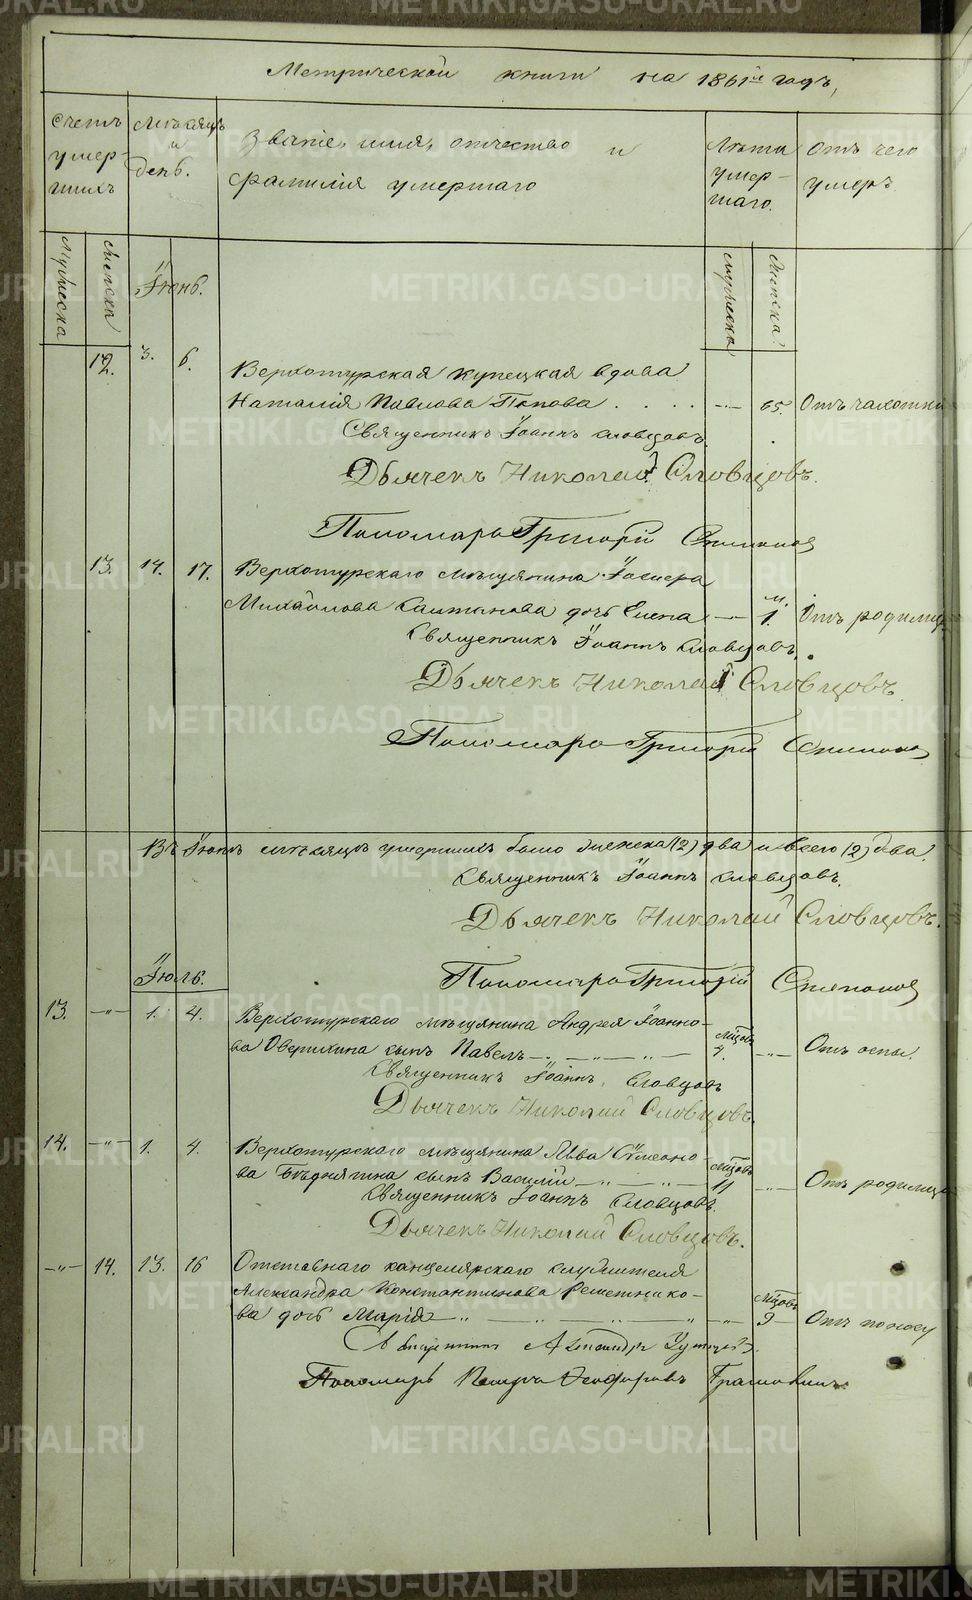 METRIKI.GASO-URAL.RU
Метрической книги на 1861й годъ,
Счетъ умершихъ
Мѣсяцъ и день.
Званіе, имя, отчество и фамилія умершаго
Лѣта умершаго.
Отъ чего умеръ
Мужеска
Женска
Мужеска
Женска
Іюнь.
12. 3. 6. Верхотурская купецкая вдова
Наталія Павлова Попова . . . . — 65. Отъ чахотки
Священникъ Іоаннъ Словцовъ.
Дьячекъ Николай Словцовъ.
Пономарь Григорій
13. 14. 17. Верхотурскаго мѣщанина
Михайлова дочь Елена — м. 1. Отъ родимца
Священникъ Іоаннъ Словцовъ.
Дьячекъ Николай Словцовъ
Пономарь Григорій
Въ Іюнѣ мѣсяцѣ умершихъ было женска (2) два и всего (2) два.
Священникъ Іоаннъ Словцовъ.
Дьячекъ Николай Словцовъ.
Іюль.
Пономарь Григорій
13. —"— 1. 4. Верхотурскаго мѣщанина Андрея Іоанно-
ва Оверихина сынъ Павелъ — " — " — мѣсцовъ 7. —"— Отъ оспы.
Священникъ Іоаннъ Словцовъ
Дьячекъ Николай Словцовъ.
14. —"— 1. 4. Верхотурскаго мѣщанина Льва Сѵмеоно-
ва сынъ Василій — " — " — мѣсцовъ 11 —"— Отъ родимца
Священникъ Іоаннъ Словцовъ.
Дьячекъ Николай Словцовъ.
—"— 14. 13. 16 Отставнаго канцелярскаго служителя
Александра Константинова Решетнико-
ва дочь Марія — " — " — " — мѣсцовъ 9 Отъ поносу
Священникъ Александръ
Пономарь Петръ